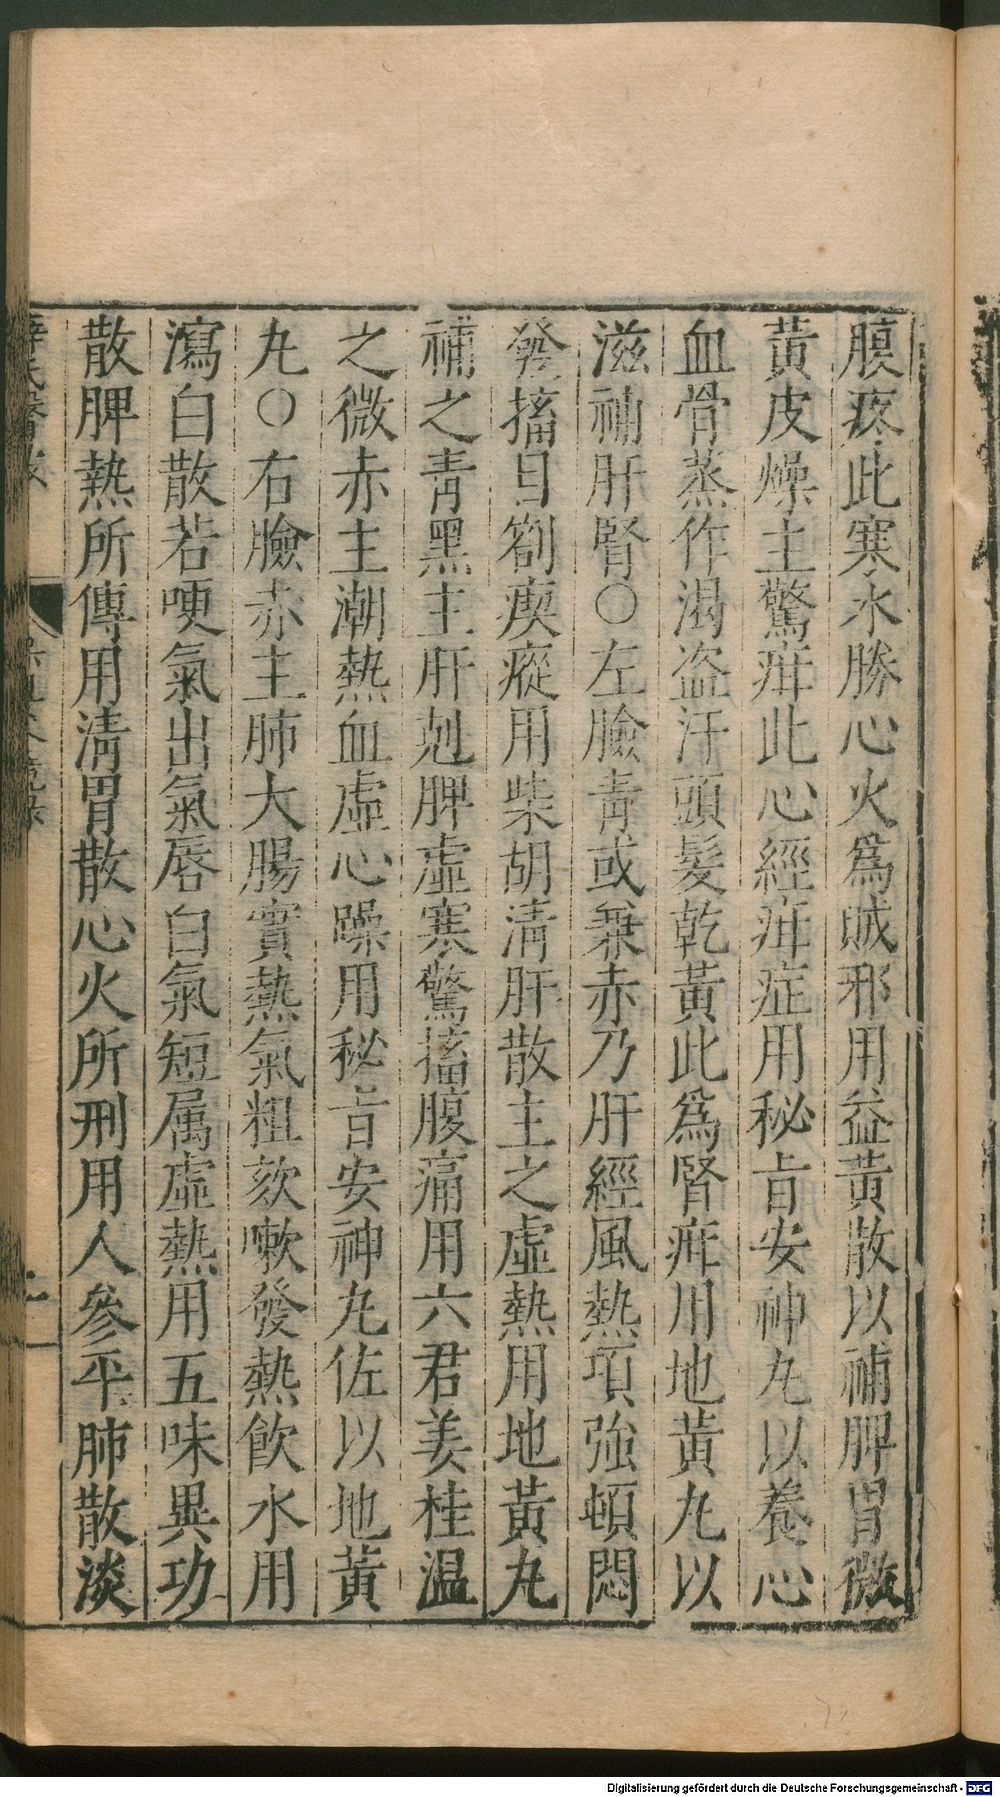 腹疼此寒水勝心火爲贼邪用益黄散以補脾胃微
黄皮燥主驚疳此心經疳症用秘旨安神丸以養心
血骨蒸作渴盗汗頭髮乾黄此爲腎疳用地黄丸以
滋補肝腎○左臉青或兼赤乃肝經風熱項強頓悶
發搐目劄瘈瘲用柴胡清肝散主之虛熱用地黄丸
補之青黑主肝剋脾虛寒驚搐腹痛用六君姜桂温
之微赤主潮熱血虛心躁用秘旨安神丸佐以地黄
丸○右臉赤主肺大腸實熱氣粗欬嗽發熱飲水用
瀉白散若哽氣出氣唇白氣短属虛熱用五味異功
散脾熱所傳用清胃散心火所刑用人參平肺散淡
Digitalisierung gefördert durch die Deutsche Forschungsgemeinschaft - DFG